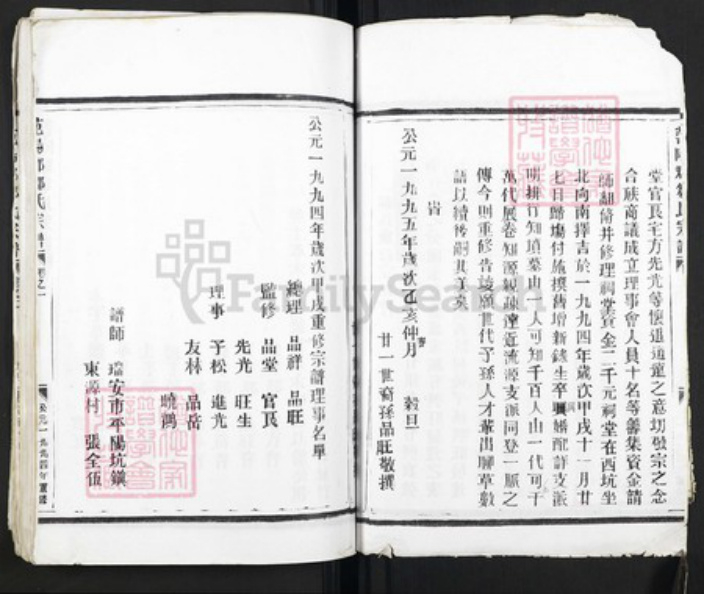 堂官艮宅方先光等懷追遠之意切發宗之念
合族商議成立理事會人員十名等籌集資金請
師細脩并修理祠堂資金二千元祠堂在西坑坐
北向南擇吉於一九九四年歲次甲戌十一月廿
七日歸塲付施撰舊增新錄生卒興婚配詳支派
明排行知墳墓由一人可知千百人由一代可千
萬代展卷知源親疎遠近流源支派同登一脈之
傳今則重修告竣願世代子孫人才輩出聊草數
語以續後嗣其美矣
旹
公元一九九五年歲次乙亥仲月 穀旦
春
廿一世裔孫品旺敬撰
公元一九九四年歲次甲戌重修宗譜理事名單
總理 品祥 品旺
監修 品堂 官艮
先光 旺生
理事 于松 進光
友林 品岳
曉鴻
譜師 瑞安市平陽坑鎮
東源村 張全伍
公元一九九四年重修
FamilySearch